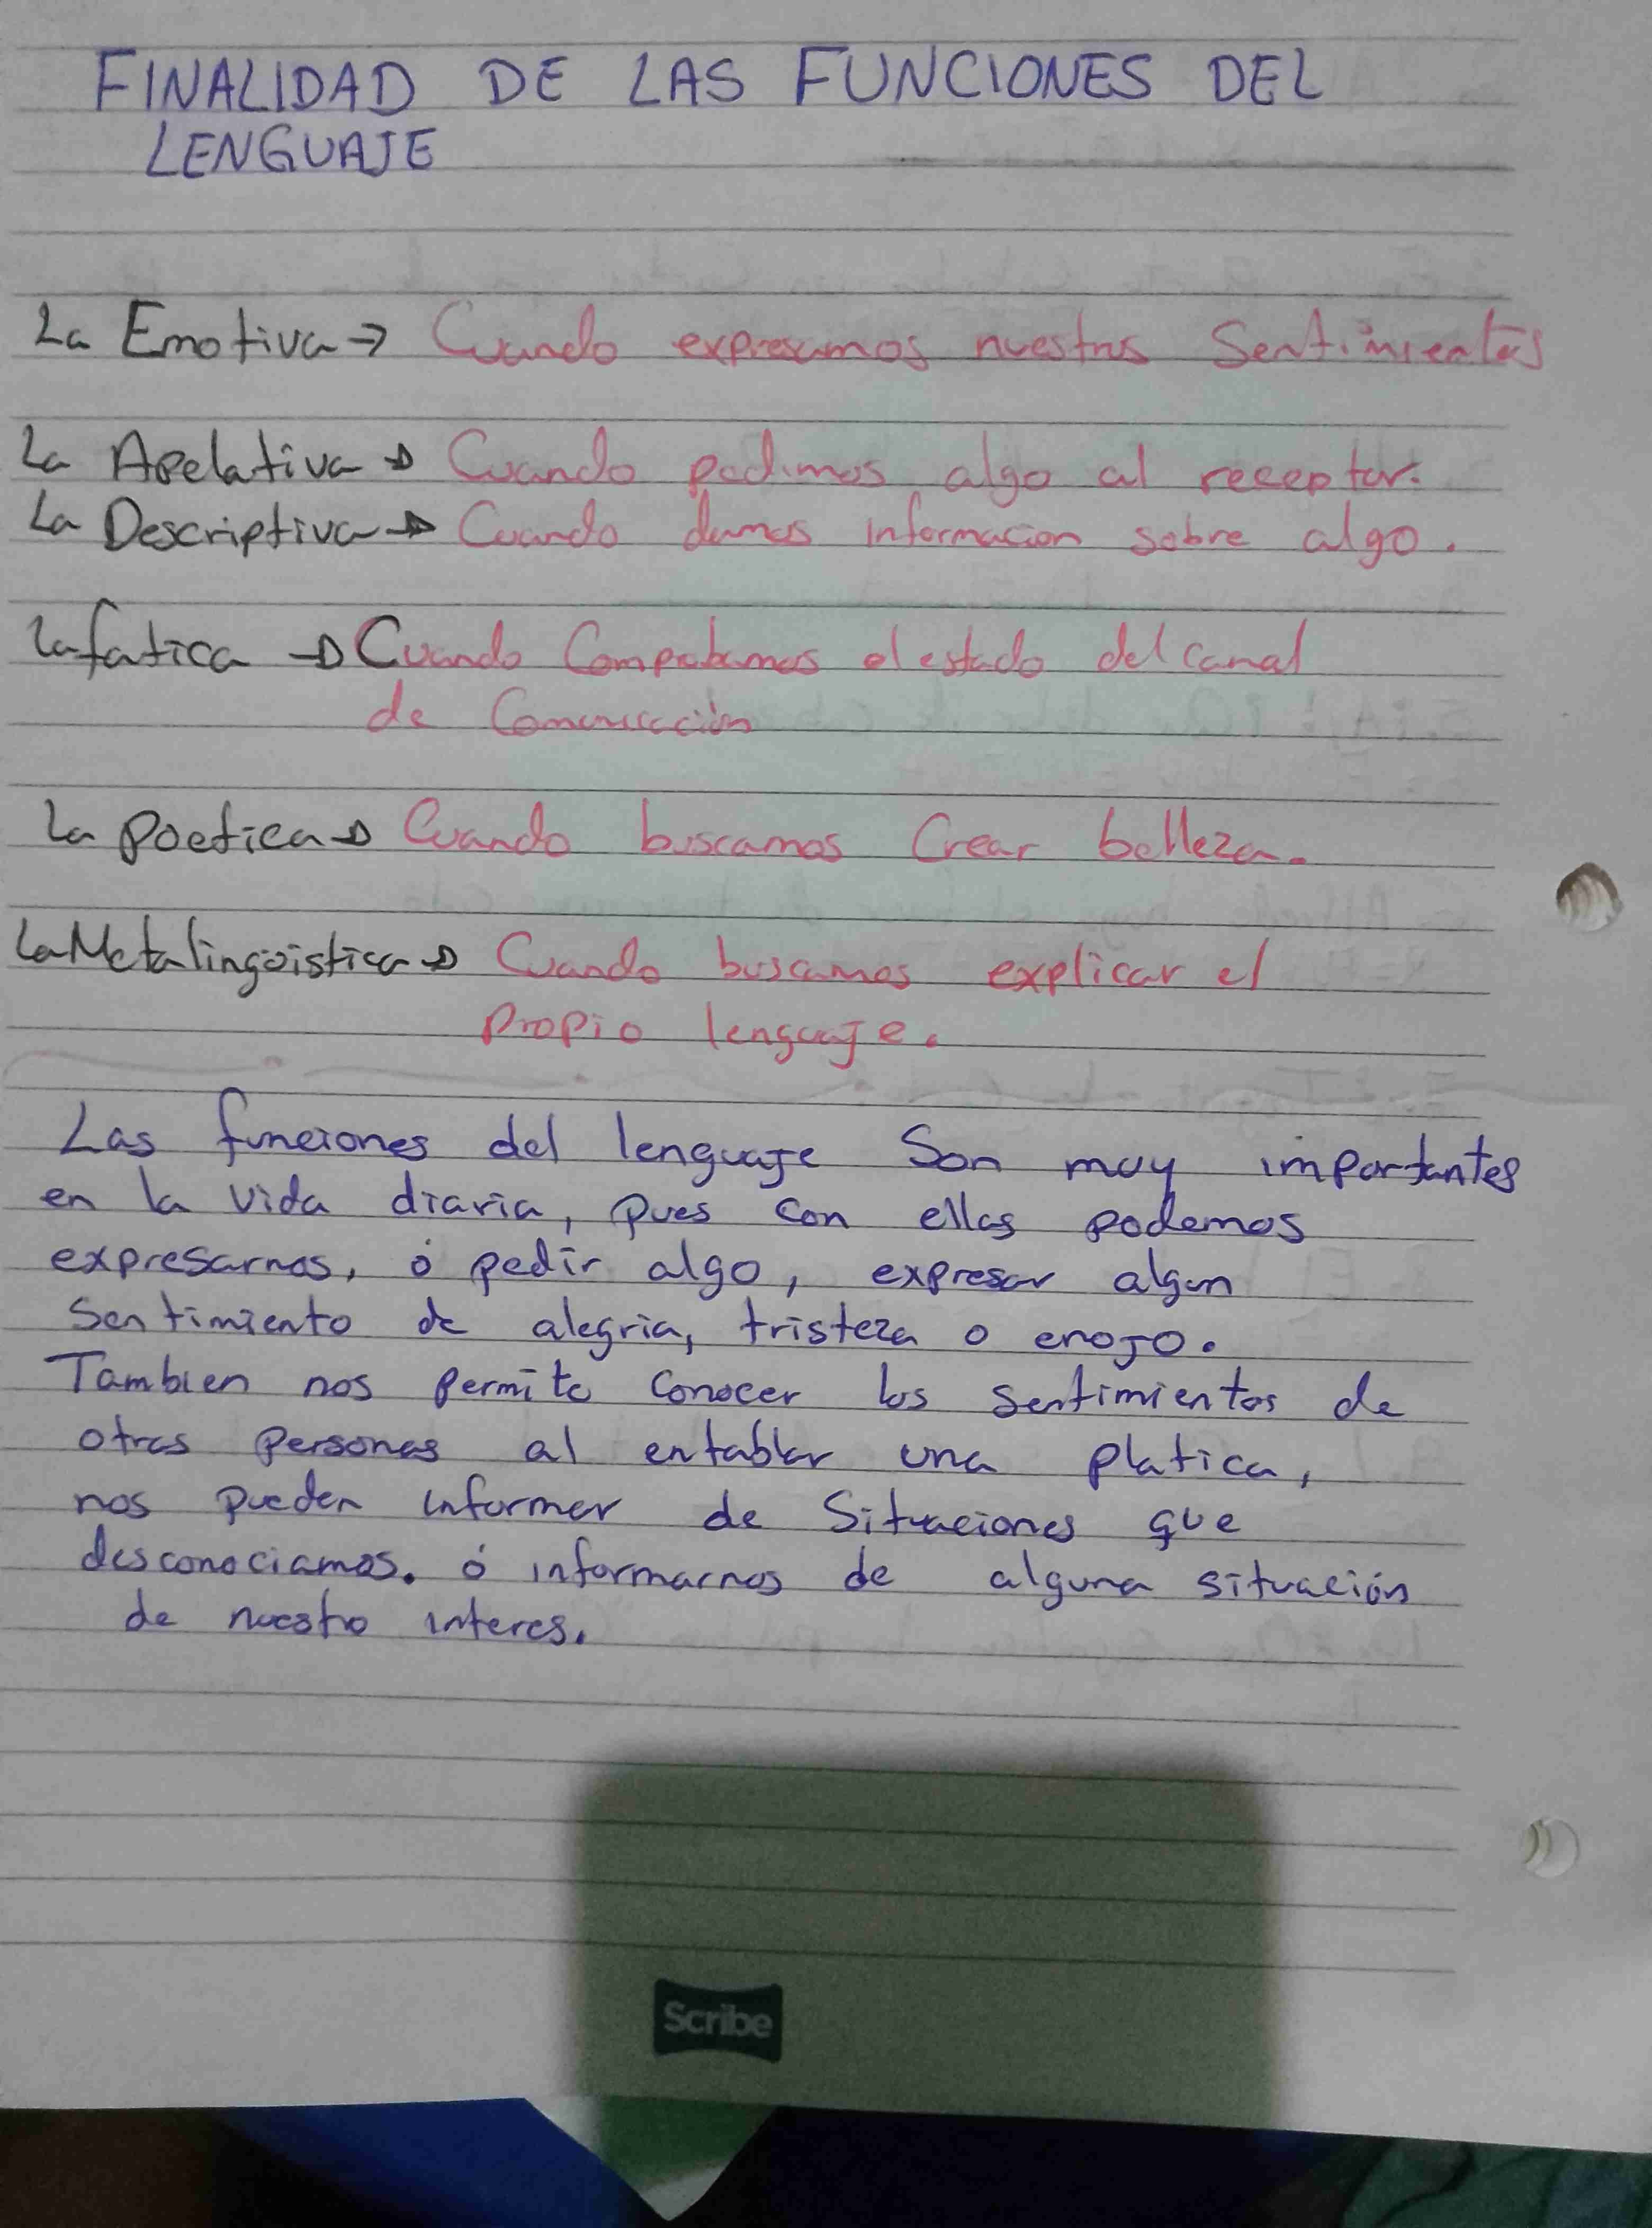 FINALIDAD DE LAS FUNCIONES DEL
LENGUAJE
La Emotiva → Cuando expresamos nuestros Sentimientos
La Apelativa → Cuando pedimos algo al receptor.
La Descriptiva → Cuando damos informacion sobre algo.
La fatica → Cuando Comprobamos el estado del canal
de Comunicación
La poetica → Cuando buscamos Crear belleza.
La Metalingüistica → Cuando buscamos explicar el
propio lenguaje.
Las funciones del lenguaje Son muy importantes
en la vida diaria, pues con ellas podemos
expresarnos, ó pedir algo, expresar algun
Sentimiento de alegria, tristeza o enojo.
Tambien nos permite conocer los sentimientos de
otras personas al entablar una platica,
nos pueden informar de Situaciones que
desconociamos. ó informarnos de alguna situación
de nuestro interes.
Scribe